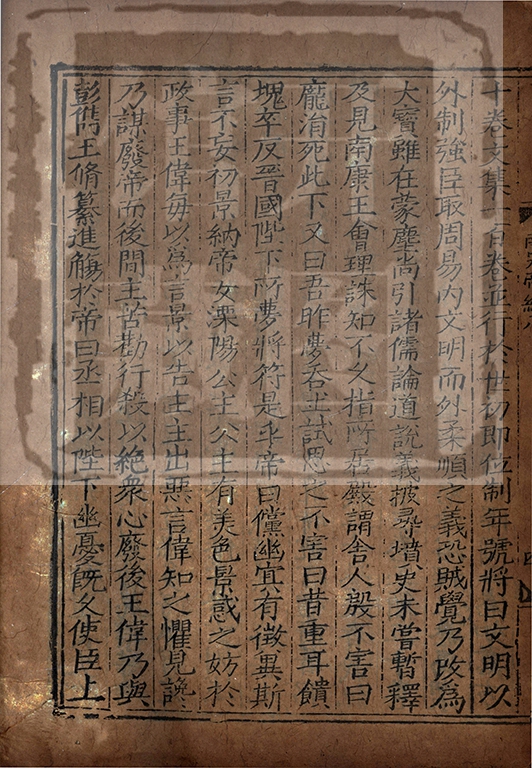 十卷文集一百卷並行於世初即位制年號將曰文明以
外制強臣取周易內文明而外柔順之義恐賊覺乃改為
大寶雖在蒙塵尚引諸儒論道說義披尋墳史未嘗暫釋
及見南康王會理誅知不久指所居殿謂舍人殷不害曰
龐涓死此下又曰吾昨夢吞土試思之不害曰昔重耳饋
塊卒反晉國陛下所夢將符是乎帝曰儻幽冥有徵冀斯
言不妄初景納帝女溧陽公主公主有美色景惑之妨於
政事王偉每以為言景以告主主出惡言偉知之懼見讒
乃謀廢帝而後間主苦勸行殺以絕衆心廢後王偉乃與
彭雋王脩纂進觴於帝曰丞相以陛下幽憂既久使臣上